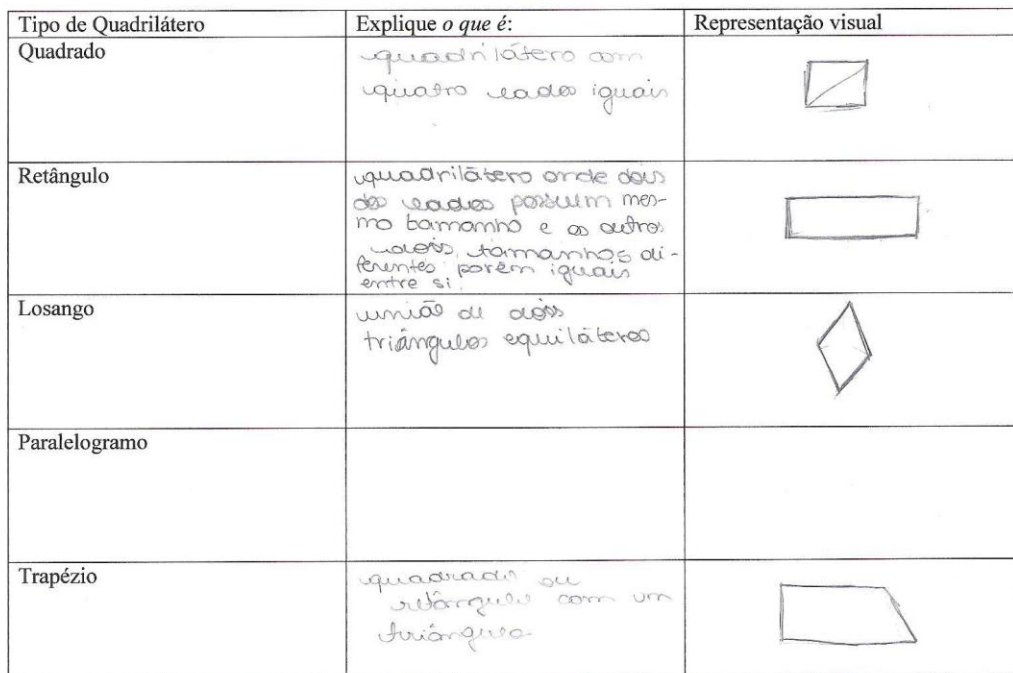 Tipo de Quadrilátero
Explique o que é:
Representação visual
Quadrado
quadrilátero com
quatro lados iguais
Retângulo
quadrilátero onde dois
dos lados possuem mes-
mo tamanho e os outros
dois, tamanhos di-
ferentes porém iguais
entre si.
Losango
união de dois
triângulos equiláteros
Paralelogramo
Trapézio
quadrado ou
retângulo com um
triângulo.